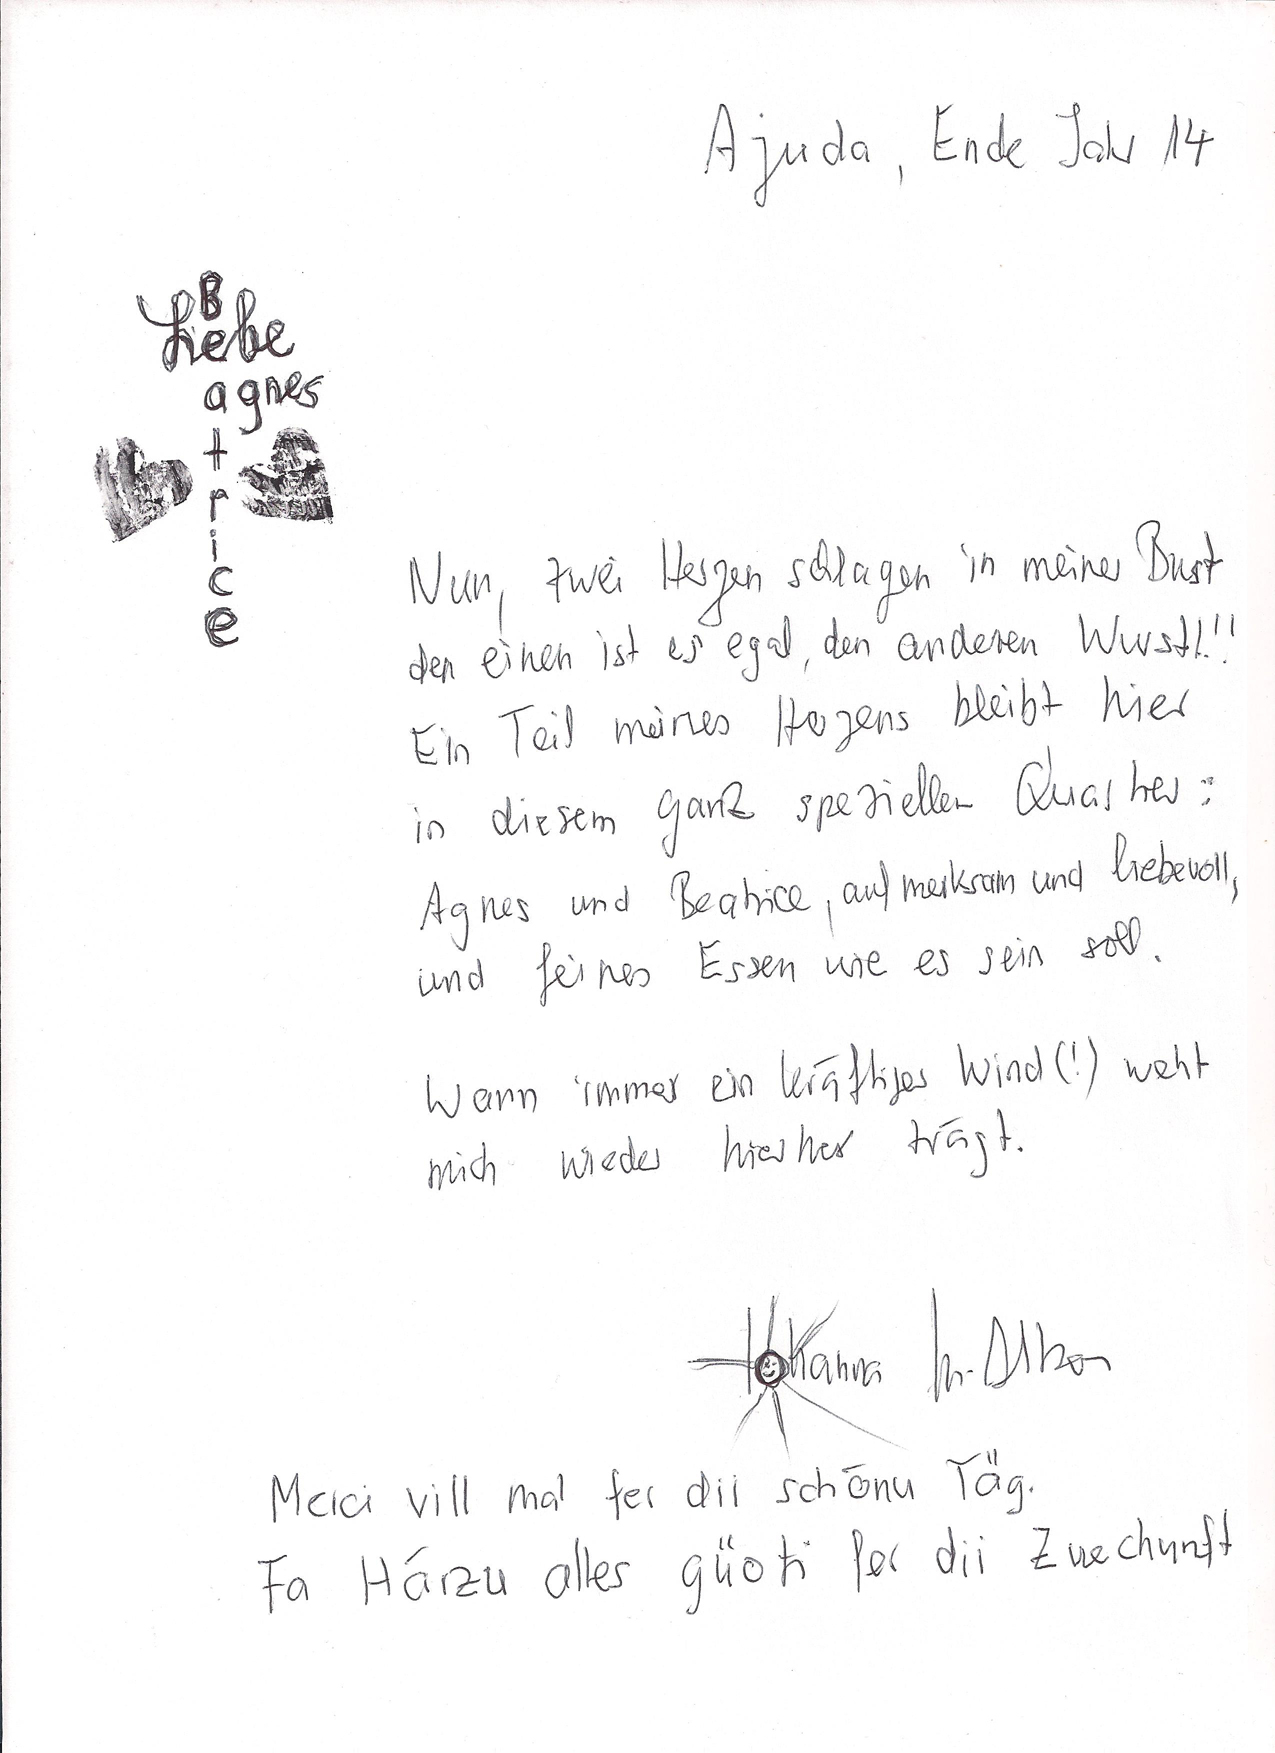 Ajuda, Ende Jahr 14
Liebe
agnes
Beatrice
Nun, zwei Herzen schlagen in meiner Brust
den einen ist es egal, den anderen Wurst!!!
Ein Teil meines Herzens bleibt hier
in diesem ganz speziellen Quartier:
Agnes und Beatrice, aufmerksam und liebevoll,
und feines Essen wie es sein soll.
Wann immer ein kräftiger Wind(!) weht
mich wieder hierher trägt.
Merci vill mal fer dii schönu Täg.
Fa Härzu alles güoti fer dii Zuechunft